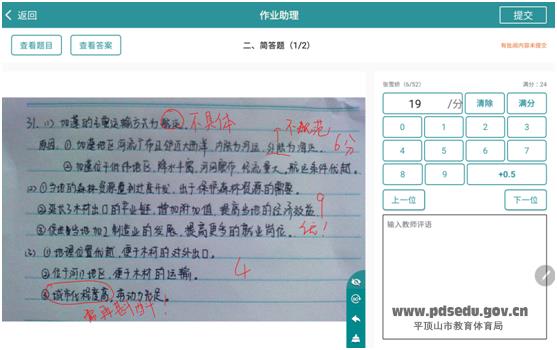 返回
作业助理
提交
查看题目
查看答案
二、简答题（1/2）
有批阅内容未提交
(6/52)
满分：24
19
/分
清除
满分
0
1
2
3
4
5
6
7
8
9
+0.5
上一位
下一位
输入教师评语
31. (1) 加蓬的主要运输方式为
不具体
不规范
6分
原因：①加蓬地区河流下游且邻近大西洋，内陆为河运，
②加蓬位于低纬地区，降水丰富，河网密布，
(2)①当地的森林资源遭到过度开发，出于保护森林资源的需要。
②延长了木材出口的产业链，增加附加值，提高当地的经济效益
9
③促进当地加工制造业的发展，提高更多的就业岗位。
优！
(3)①地理位置优越，便于木材的对外出口。
②位于河口地区，便于木材的运输。
4
③城市化程度高，劳动力充足。
www.pdsedu.gov.cn
平顶山市教育体育局